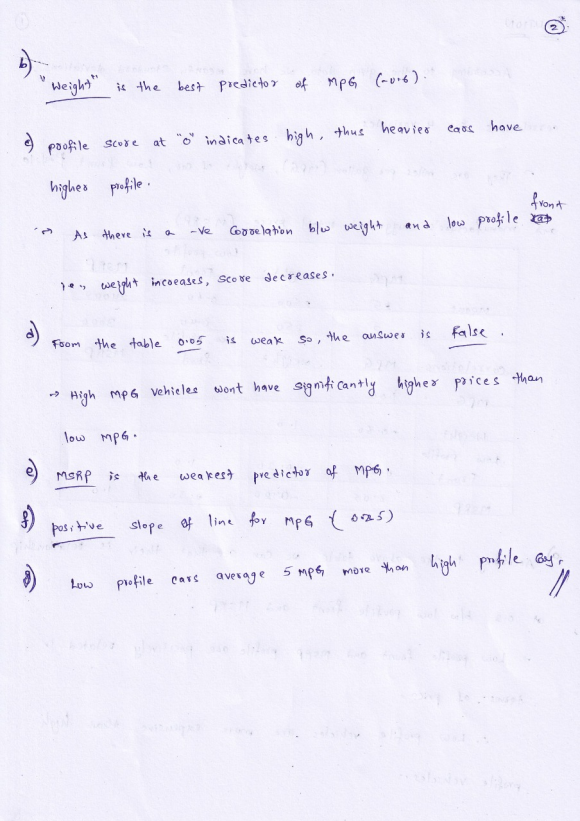 2
b) "Weight" is the best predictor of MPG (-0.6).
c) profile score at "0" indicates high, thus heavier cars have
higher profile.
→ As there is a -ve Correlation b/w weight and low profile front
i.e., weight increases, score decreases.
d) From the table 0.05 is weak so, the answer is False.
→ High MPG vehicles wont have significantly higher prices than
low MPG.
e) MSRP is the weakest predictor of MPG.
f) positive slope of line for MPG
g) Low profile cars average 5 MPG more than high profile